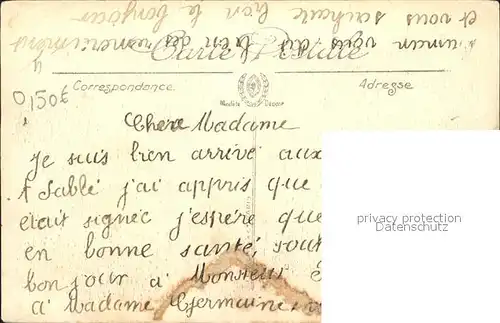 et vous souhaite bien le bonjour
maman vous dis bien des remerciments
Carte Postale
0,150€
Correspondance
Adresse
Modèle Déposé
Chere Madame
Je suis bien arrivé aux
Sablé j'ai appris que
était signée j'espère que
en bonne santé,
bonjour à Monsieur
à Madame Germaine,
privacy protection
Datenschutz